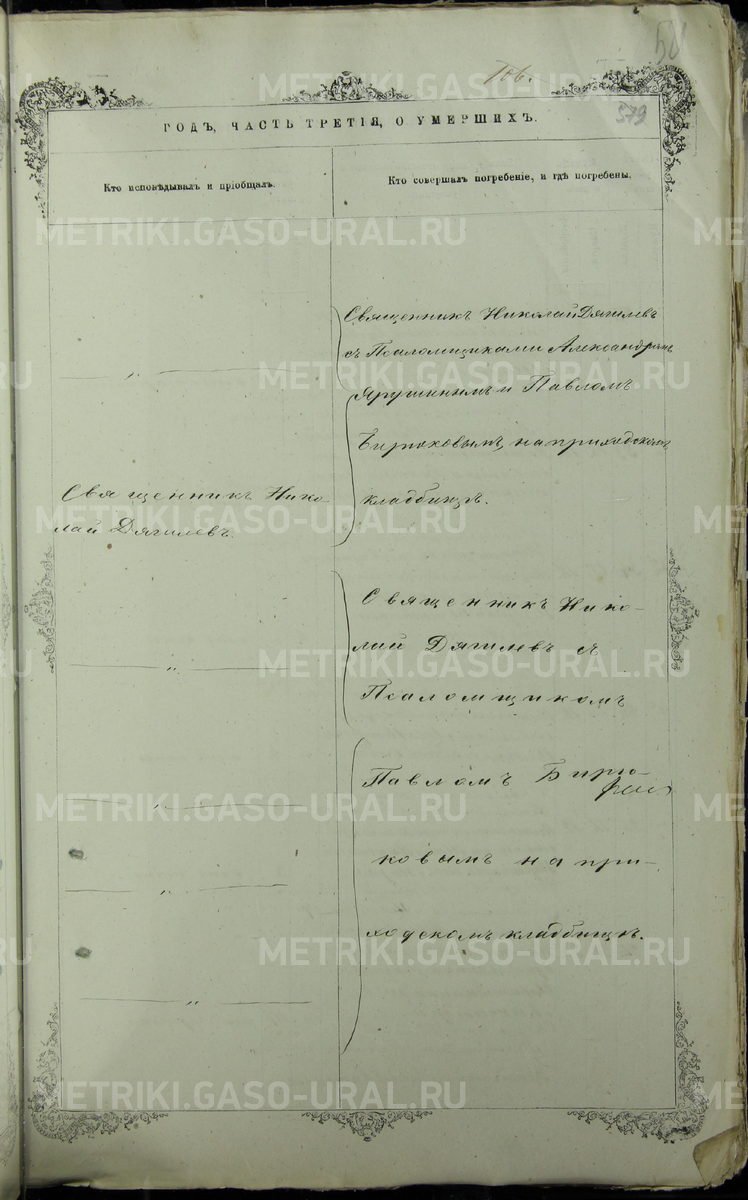 106.
579
ГОДЪ, ЧАСТЬ ТРЕТІЯ, О УМЕРШИХЪ.
Кто исповѣдывалъ и пріобщалъ.
Кто совершалъ погребеніе, и гдѣ погребены.
Священникъ Нико-
лай Дягилевъ.
Священникъ Николай Дягилевъ
съ Псаломщиками Александромъ
Ярушинымъ и Павломъ
Бирюковымъ, на приходскомъ
кладбищѣ.
Священникъ Нико-
лай Дягилевъ съ
Псаломщикомъ
Павломъ Бирю-
ковымъ на при-
ходскомъ кладбищѣ.
METRIKI.GASO-URAL.RU